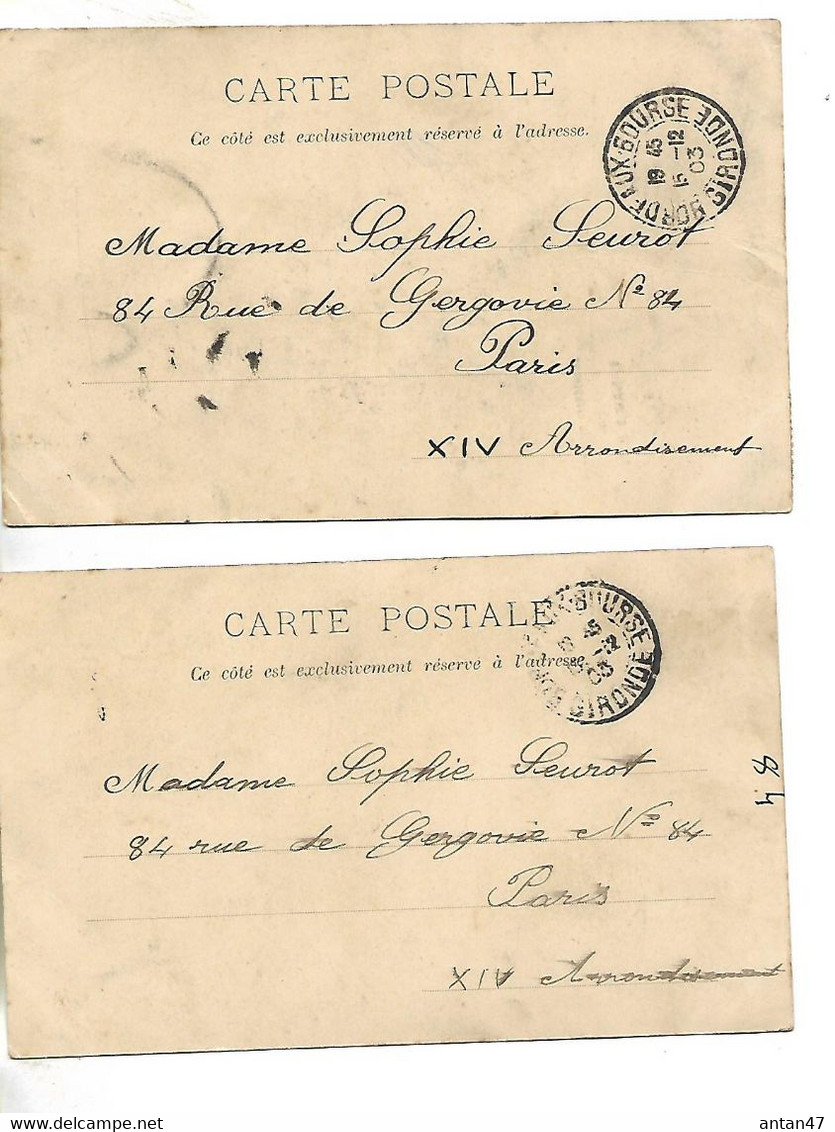 CARTE POSTALE
Ce côté est exclusivement réservé à l'adresse.
BORDEAUX-BOURSE GIRONDE
19 45
15 -12
03
Madame Sophie Seurot
84 Rue de Gergovie Nº 84
Paris
XIV Arrondisement
CARTE POSTALE
Ce côté est exclusivement réservé à l'adresse.
BOURSE GIRONDE
03
Madame Sophie Seurot
84 rue de Gergovie Nº 84
Paris
XIV Arrondisement
84
antan47